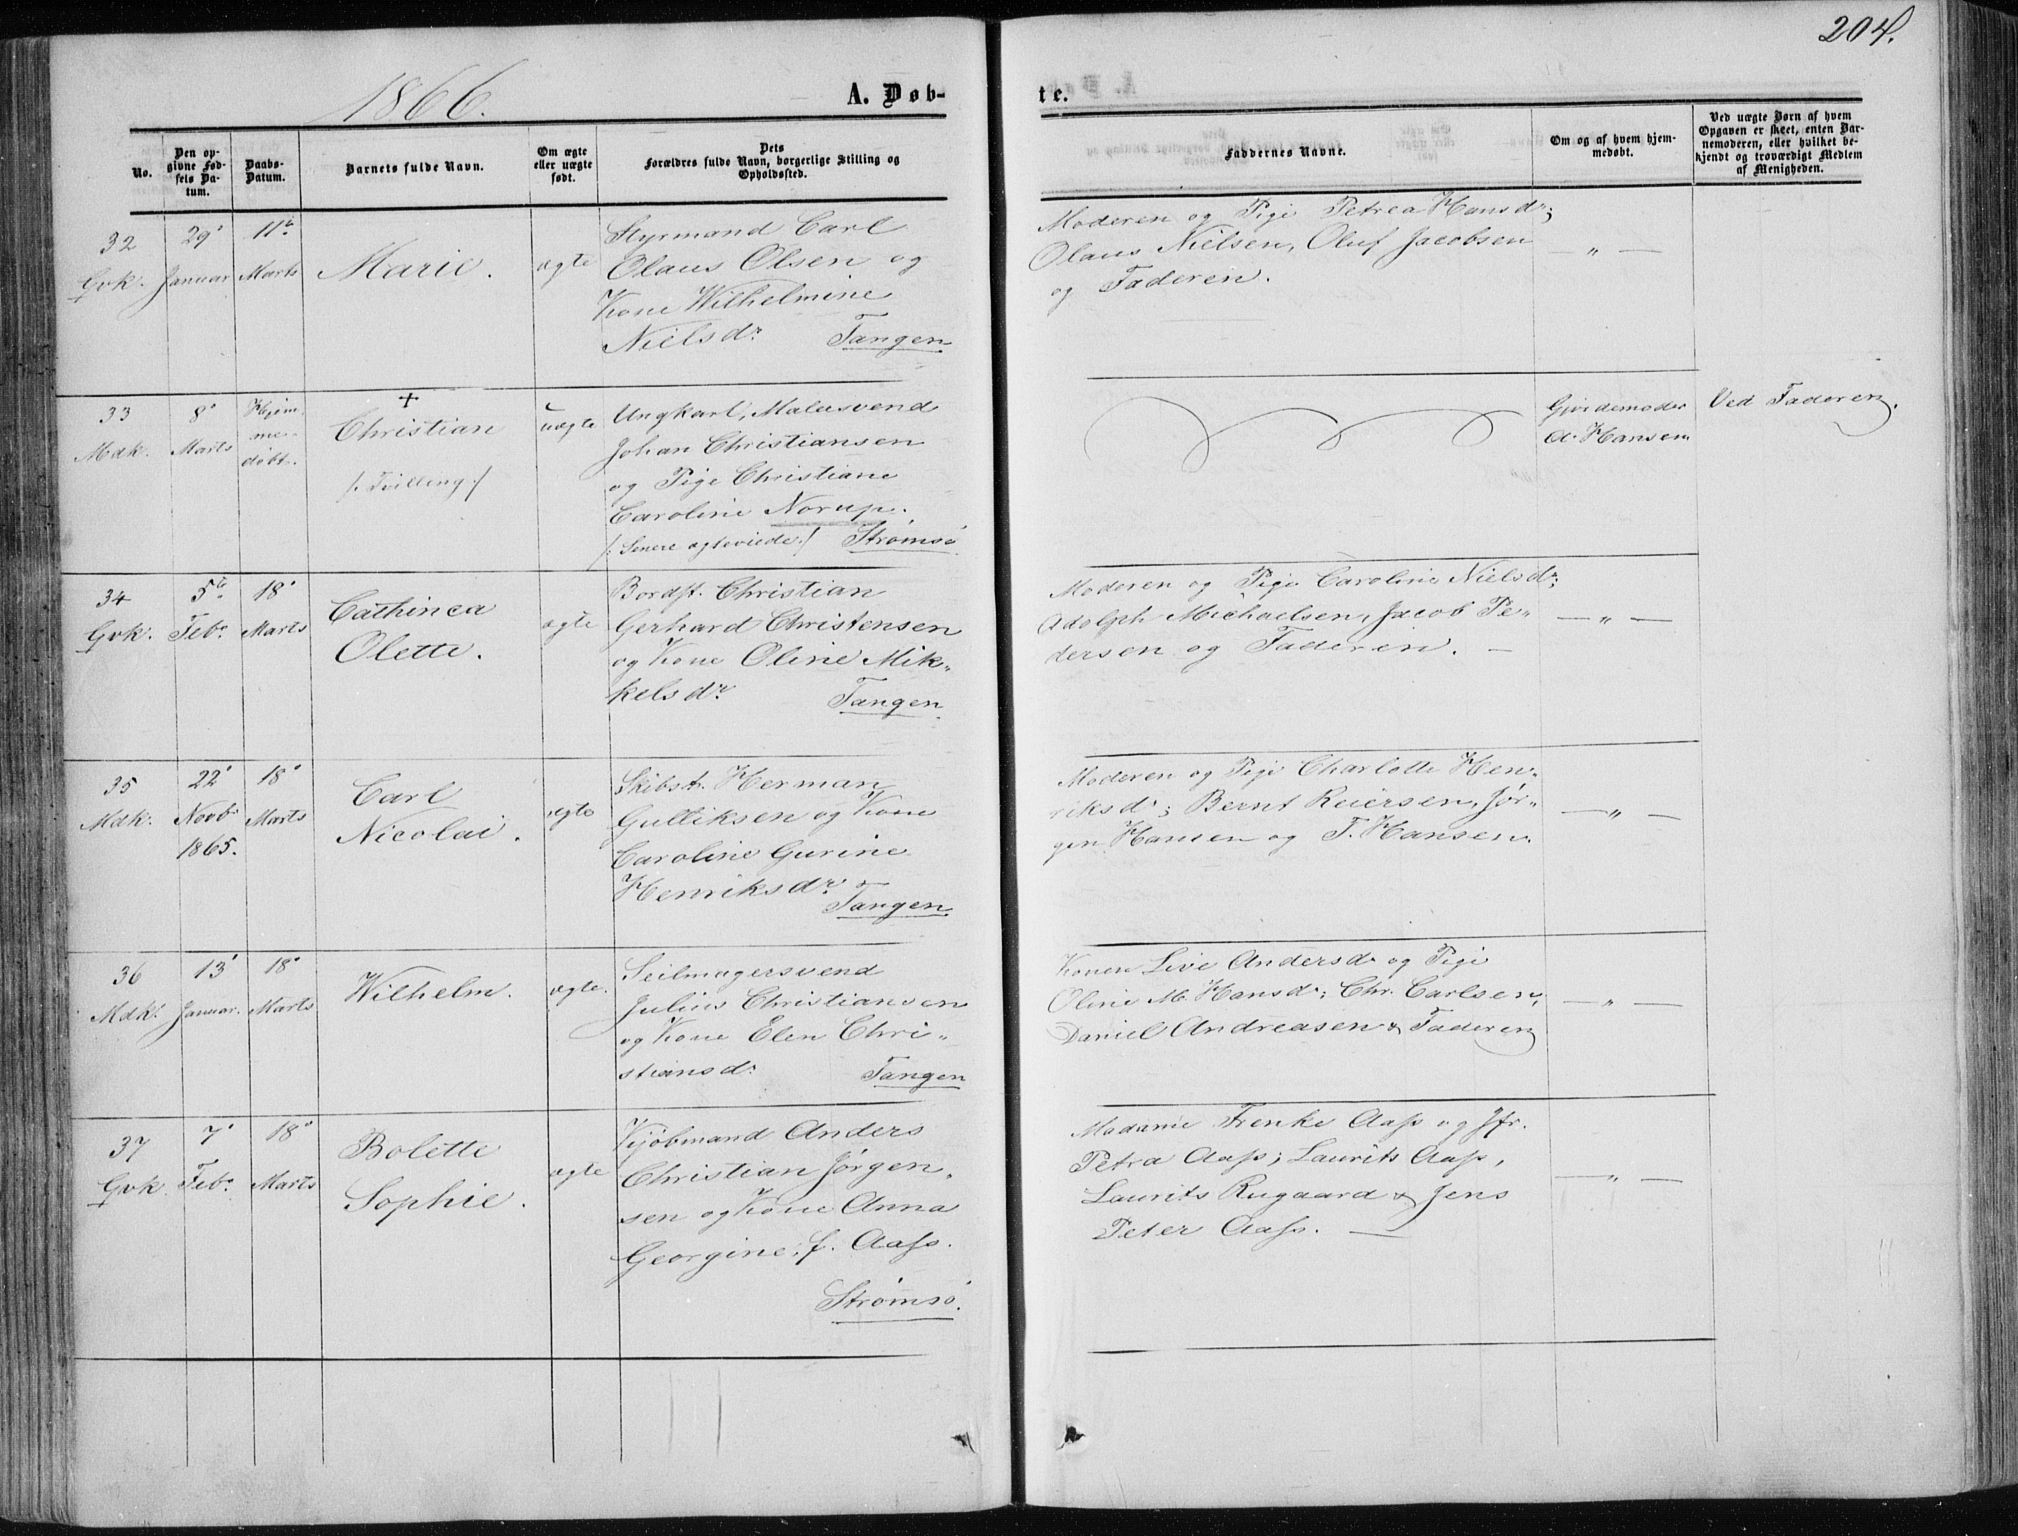 204.
1866.
A. Døb-
te.
No.
Den op-
givne Fød-
sels Da-
tum.
Daabs-
Datum.
Barnets fulde Navn.
Om ægte
eller uægte
født.
Dets
Forældres fulde Navn, borgerlige Stilling og
Opholdssted.
Faddernes Navne.
Om og af hvem hjem-
medøbt.
Ved uægte Børn af hvem
Opgaven er skeet, enten Bar-
nemoderen, eller hvilket be-
kjendt og troværdigt Medlem
af Menigheden.
32
Gvk.
29'
Januar
11te
Marts
Marie.
ægte
Styrmand Carl
Olaus Olsen og
Kone Wilhelmine
Nielsdr. Tangen
Moderen og Pige Petrea Hansdr;
Olaus Nielsen, Oluf Jacobsen
og Faderen.
— " —
33
Mdk.
8'
Marts
Hjem-
me-
døbt.
+
Christian
/: Tvilling :/
uægte
Ungkarl, Malersvend
Johan Christiansen
og Pige Christiane
Caroline Norup.
/: Senere ægteviede :/ Strømsø
Gjordemoder
A. Hansen
Ved Faderen.
34
Gvk.
5te
Febr.
18'
Marts
Cathinca
Olette.
ægte
Bordst. Christian
Gerhard Christensen
og Kone Oline Mik-
kelsdr. Tangen
Moderen og Pige Caroline Nielsdr;
Adolph Michaelsen, Jacob Pe-
dersen og Faderen. —
— " —
35
Mdk.
22'
Novb.
1865.
18'
Marts
Carl
Nicolai.
ægte
Skibst. Herman
Gulliksen og Kone
Caroline Gurine
Henriksdr.
Tangen
Moderen og Pige Charlotte Hen-
riksdr; Bernt Reiersen, Jør-
gen Hansen og T. Hansen.
— " —
36
Mdk.
13'
Januar.
18'
Marts
Wilhelm.
ægte.
Seilmagersvend
Julius Christiansen
og Kone Elen Chri-
stiansdr. Tangen
Konen Live Andersdr og Pige
Oline M. Hansdr; Chr. Carlsen,
Daniel Andreasen & Faderen
— " —
37
Gvk
7'
Febr.
18'
Marts
Bolette
Sophie.
ægte
Kjøbmand Anders
Christian Jørgen-
sen og Kone Anna
Georgine, f. Aass.
Strømsø.
Madame Frenke Aass og Jfr.
Petra Aass; Laurits Aass,
Laurits Rugaard & Jens
Peter Aass. —
— " —